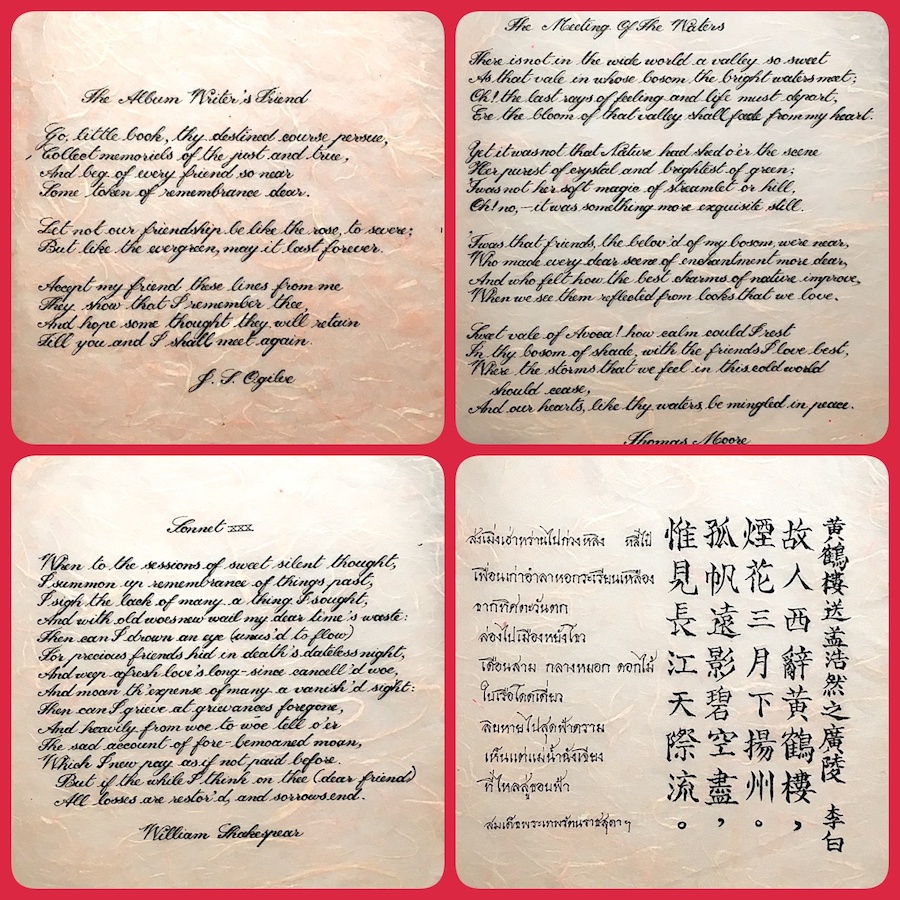 The Album Writer's Friend
Go, little book, thy destined course persue,
Collect memorials of the just and true,
And beg of every friend so near
Some token of remembrance dear.
Let not our friendship be like the rose, to severe;
But like the evergreen, may it last forever.
Accept my friend these lines from me
They show that I remember thee,
And hope some thought they will retain
Till you and I shall meet again.
J. S. Ogilve
The Meeting Of The Waters
There is not in the wide world a valley so sweet
As that vale in whose bosom the bright waters meet;
Oh! the last rays of feeling and life must depart,
Ere the bloom of that valley shall fade from my heart.
Yet it was not that Nature had shed o'er the scene
Her purest of crystal and brightest of green;
Twas not her soft magic of streamlet or hill,
Oh! no,-it was something more exquisite still.
'Twas that friends, the belov'd of my bosom, were near,
Who made every dear scene of enchantment more dear,
And who felt how the best charms of nature improve,
When we see them reflected from looks that we love.
Sweet vale of Avoca! how calm could I rest
In thy bosom of shade, with the friends I love best,
Where the storms that we feel in this cold world
should cease,
And our hearts, like thy waters, be mingled in peace.
Thomas Moore
Sonnet XXX
When to the sessions of sweet silent thought,
I summon up remembrance of things past,
I sigh the lack of many a thing I sought,
And with old woes new wail my dear time's waste:
Then can I drown an eye (unus'd to flow)
For precious friends hid in death's dateless night,
And weep afresh love's long-since cancell'd woe,
And moan th'expense of many a vanish'd sight:
Then can I grieve at grievances foregone,
And heavily from woe to woe tell o'er
The sad account of fore-bemoaned moan,
Which I new pay as if not paid before.
But if the while I think on thee (dear friend)
All losses are restor'd, and sorrows end.
William Shakespear
ส่งเมิ่งเฮ่าหรานไปกว่งหลิง หลี่ไป๋
เพื่อนเก่าอำลาหอกระเรียนเหลือง
จากทิศตะวันตก
ล่องไปเมืองหยังโจว
เดือนสาม กลางหมอก ดอกไม้
ใบเรือโดดเดี่ยว
ลับหายไปสุดฟ้าคราม
เห็นแต่แม่น้ำฉังเจียง
ที่ไหลสู่ขอบฟ้า
สมเด็จพระเทพรัตนราชสุดาฯ
黃鶴樓送孟浩然之廣陵 李白
故人西辭黃鶴樓，
煙花三月下揚州。
孤帆遠影碧空盡，
惟見長江天際流。